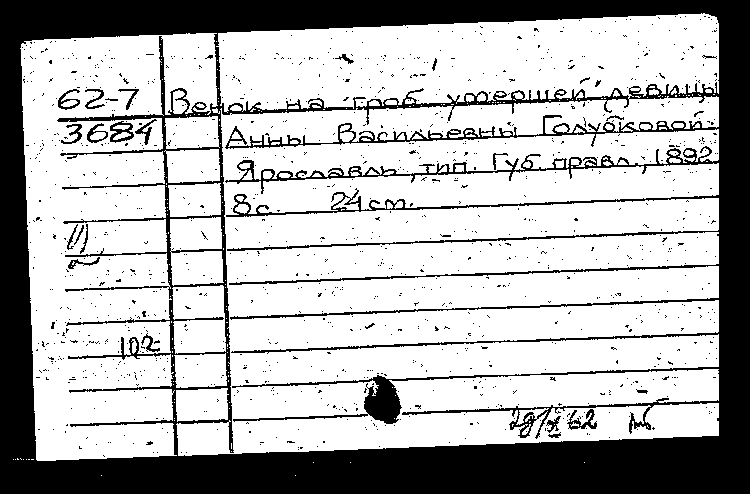 62-7 Венок на гроб умершей девицы
3684 Анны Васильевны Голубковой.
Ярославль, тип. Губ. правл., 1892
8 с. 24 см.
102
29/X 62